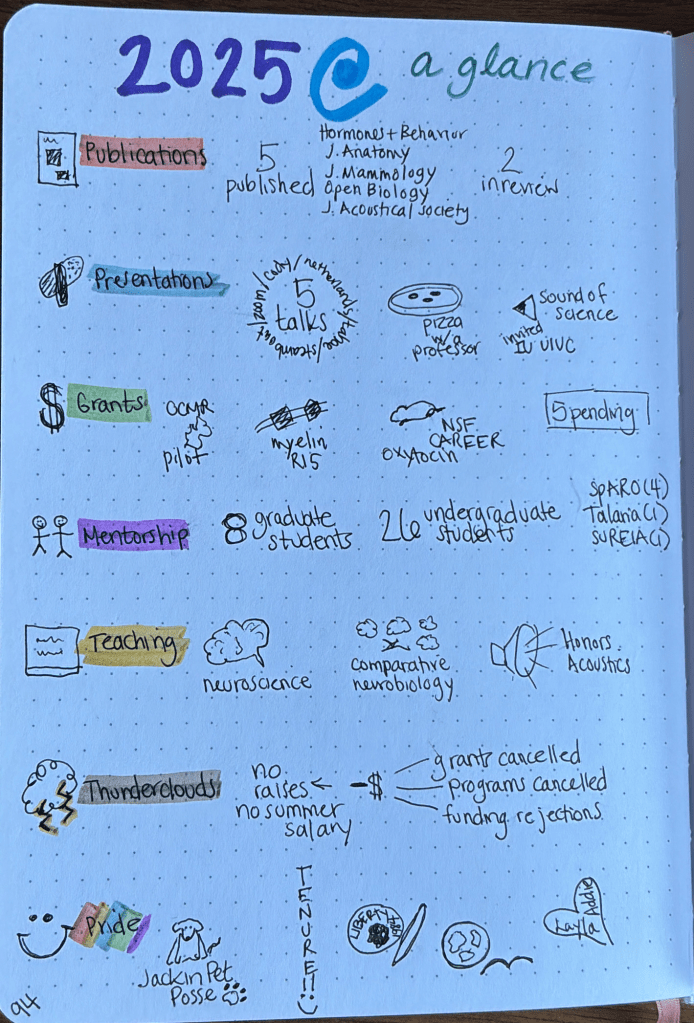 2025 @ a glance
Publications
5
published
Hormones + Behavior
J. Anatomy
J. Mammology
Open Biology
J. Acoustical Society
2
in review
Presentations
5
talks
zoom/cady/netherlands/tahoe/steamboat/
Pizza
w/a
professor
Sound of
Science
invited
UIUC
$ Grants
OCMR
pilot
myelin
R15
NSF
CAREER
oxytocin
5 pending
Mentorship
8 graduate
students
26 undergraduate
students
SPARO(4)
Talaria(1)
SUREIA(1)
Teaching
neuroscience
comparative
neurobiology
Honors
Acoustics
Thunderclouds
no
raises
no summer
salary
-$
grants cancelled
programs cancelled
funding rejections
Pride
Jack in Pet
Posse
TENURE!! :)
LIBERTY
Layla
Addie
94